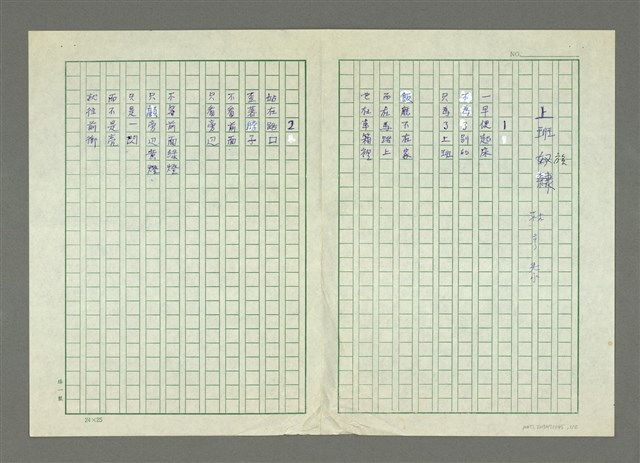 NO.
上班族奴隸
林亨泰
1
一早便起床
不為了別的
只為了上班
飯廳不在家
而在馬路上
也在車箱裡
2
站在路口
直著脖子
不看前面
只看旁邊
不等前面綠燈
只顧旁邊黃燈
只是一閃
而不是亮
就往前衝
24×25